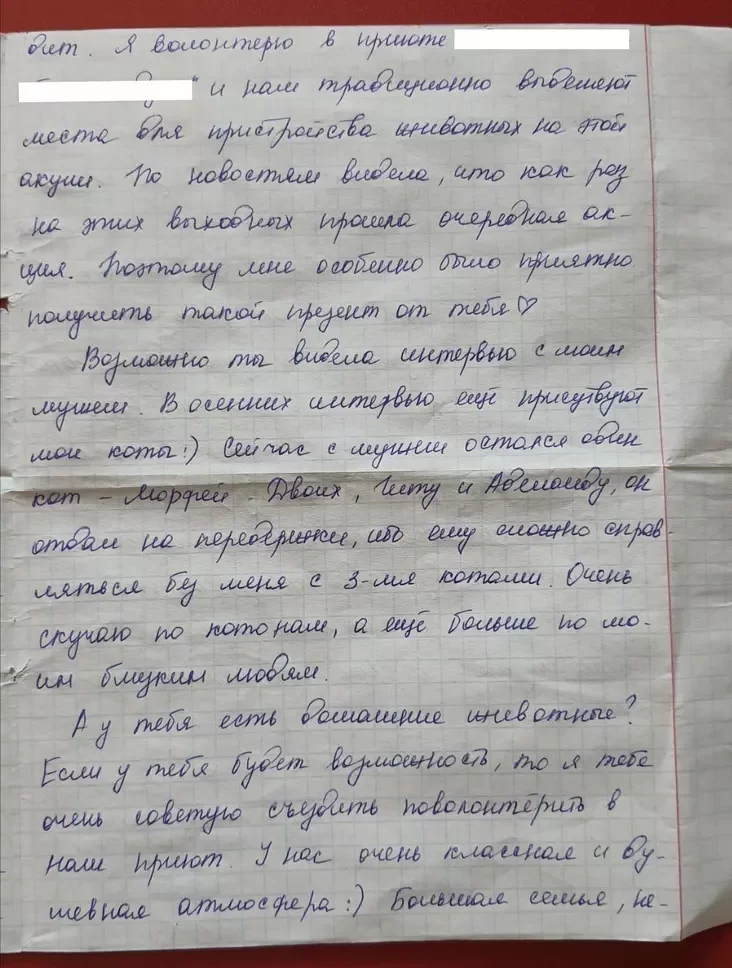 дит. Я волонтерю в приюте
" и нам традиционно выделяют
места для пристройства животных на этой
акции. По новостям видела, что как раз
на этих выходных прошла очередная ак-
ция. Поэтому мне особенно было приятно
получить такой презент от тебя♡
Возможно ты видела интервью с моим
мужем. В осенних интервью ещё присутвуют
мои коты:) Сейчас с мужем остался один
кот – Морфей. Двоих, Читу и Аделаиду, он
отдал на передержки, ибо ему сложно справ-
ляться без меня с 3-мя котами. Очень
скучаю по котонам, а ещё больше по мо-
им близким людям.
А у тебя есть домашние животные?
Если у тебя будет возможность, то я тебе
очень советую съездить поволонтёрить в
наш приют. У нас очень классная и ду-
шевная атмосфера:) Большая семья, не-